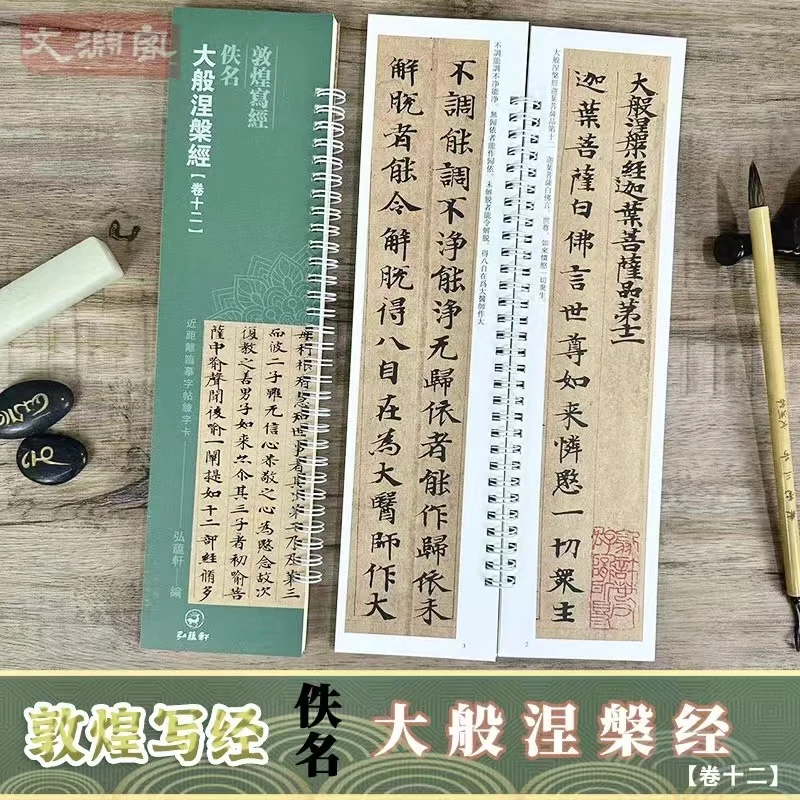 敦煌寫經
佚名
大般涅槃經【卷十二】
近距離臨摹字帖練字卡
弘蘊軒 編
而彼二子雖无信心恭敬之心為愍念故次
復教之善男子如来亦尒其三子者初喻菩
薩中喻聲聞後喻一闡提如十二部經脩多
弘蘊軒
大般涅槃經迦葉菩薩品第十二 迦葉菩薩白佛言。世尊。如來憐愍一切衆生
大般涅槃經迦葉菩薩品第十二
迦葉菩薩白佛言世尊如来憐愍一切衆生
2
不調能調不净能净。無歸依者能作歸依。未解脱者能令解脱。得八自在爲大醫師作大
不調能調不净能净无歸依者能作歸依未
解脱者能令解脱得八自在為大醫師作大
3
敦煌写经
佚名
大般涅槃经
【卷十二】